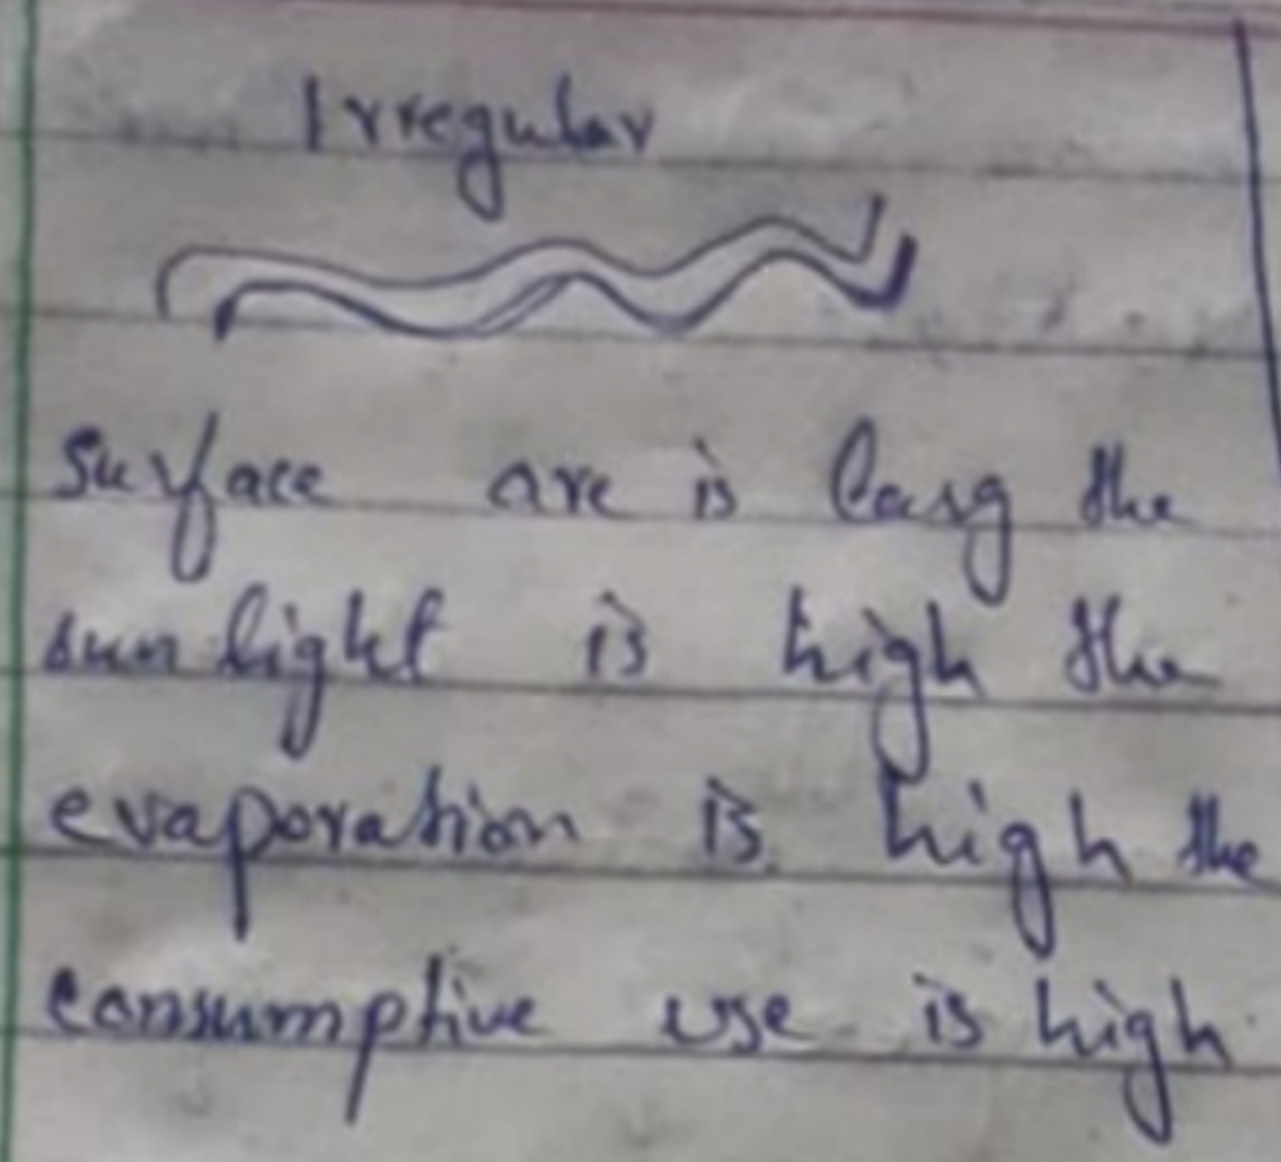 Irregular
Surface are is larg the
sunlight is high the
evaporation is high the
consumptive use is high